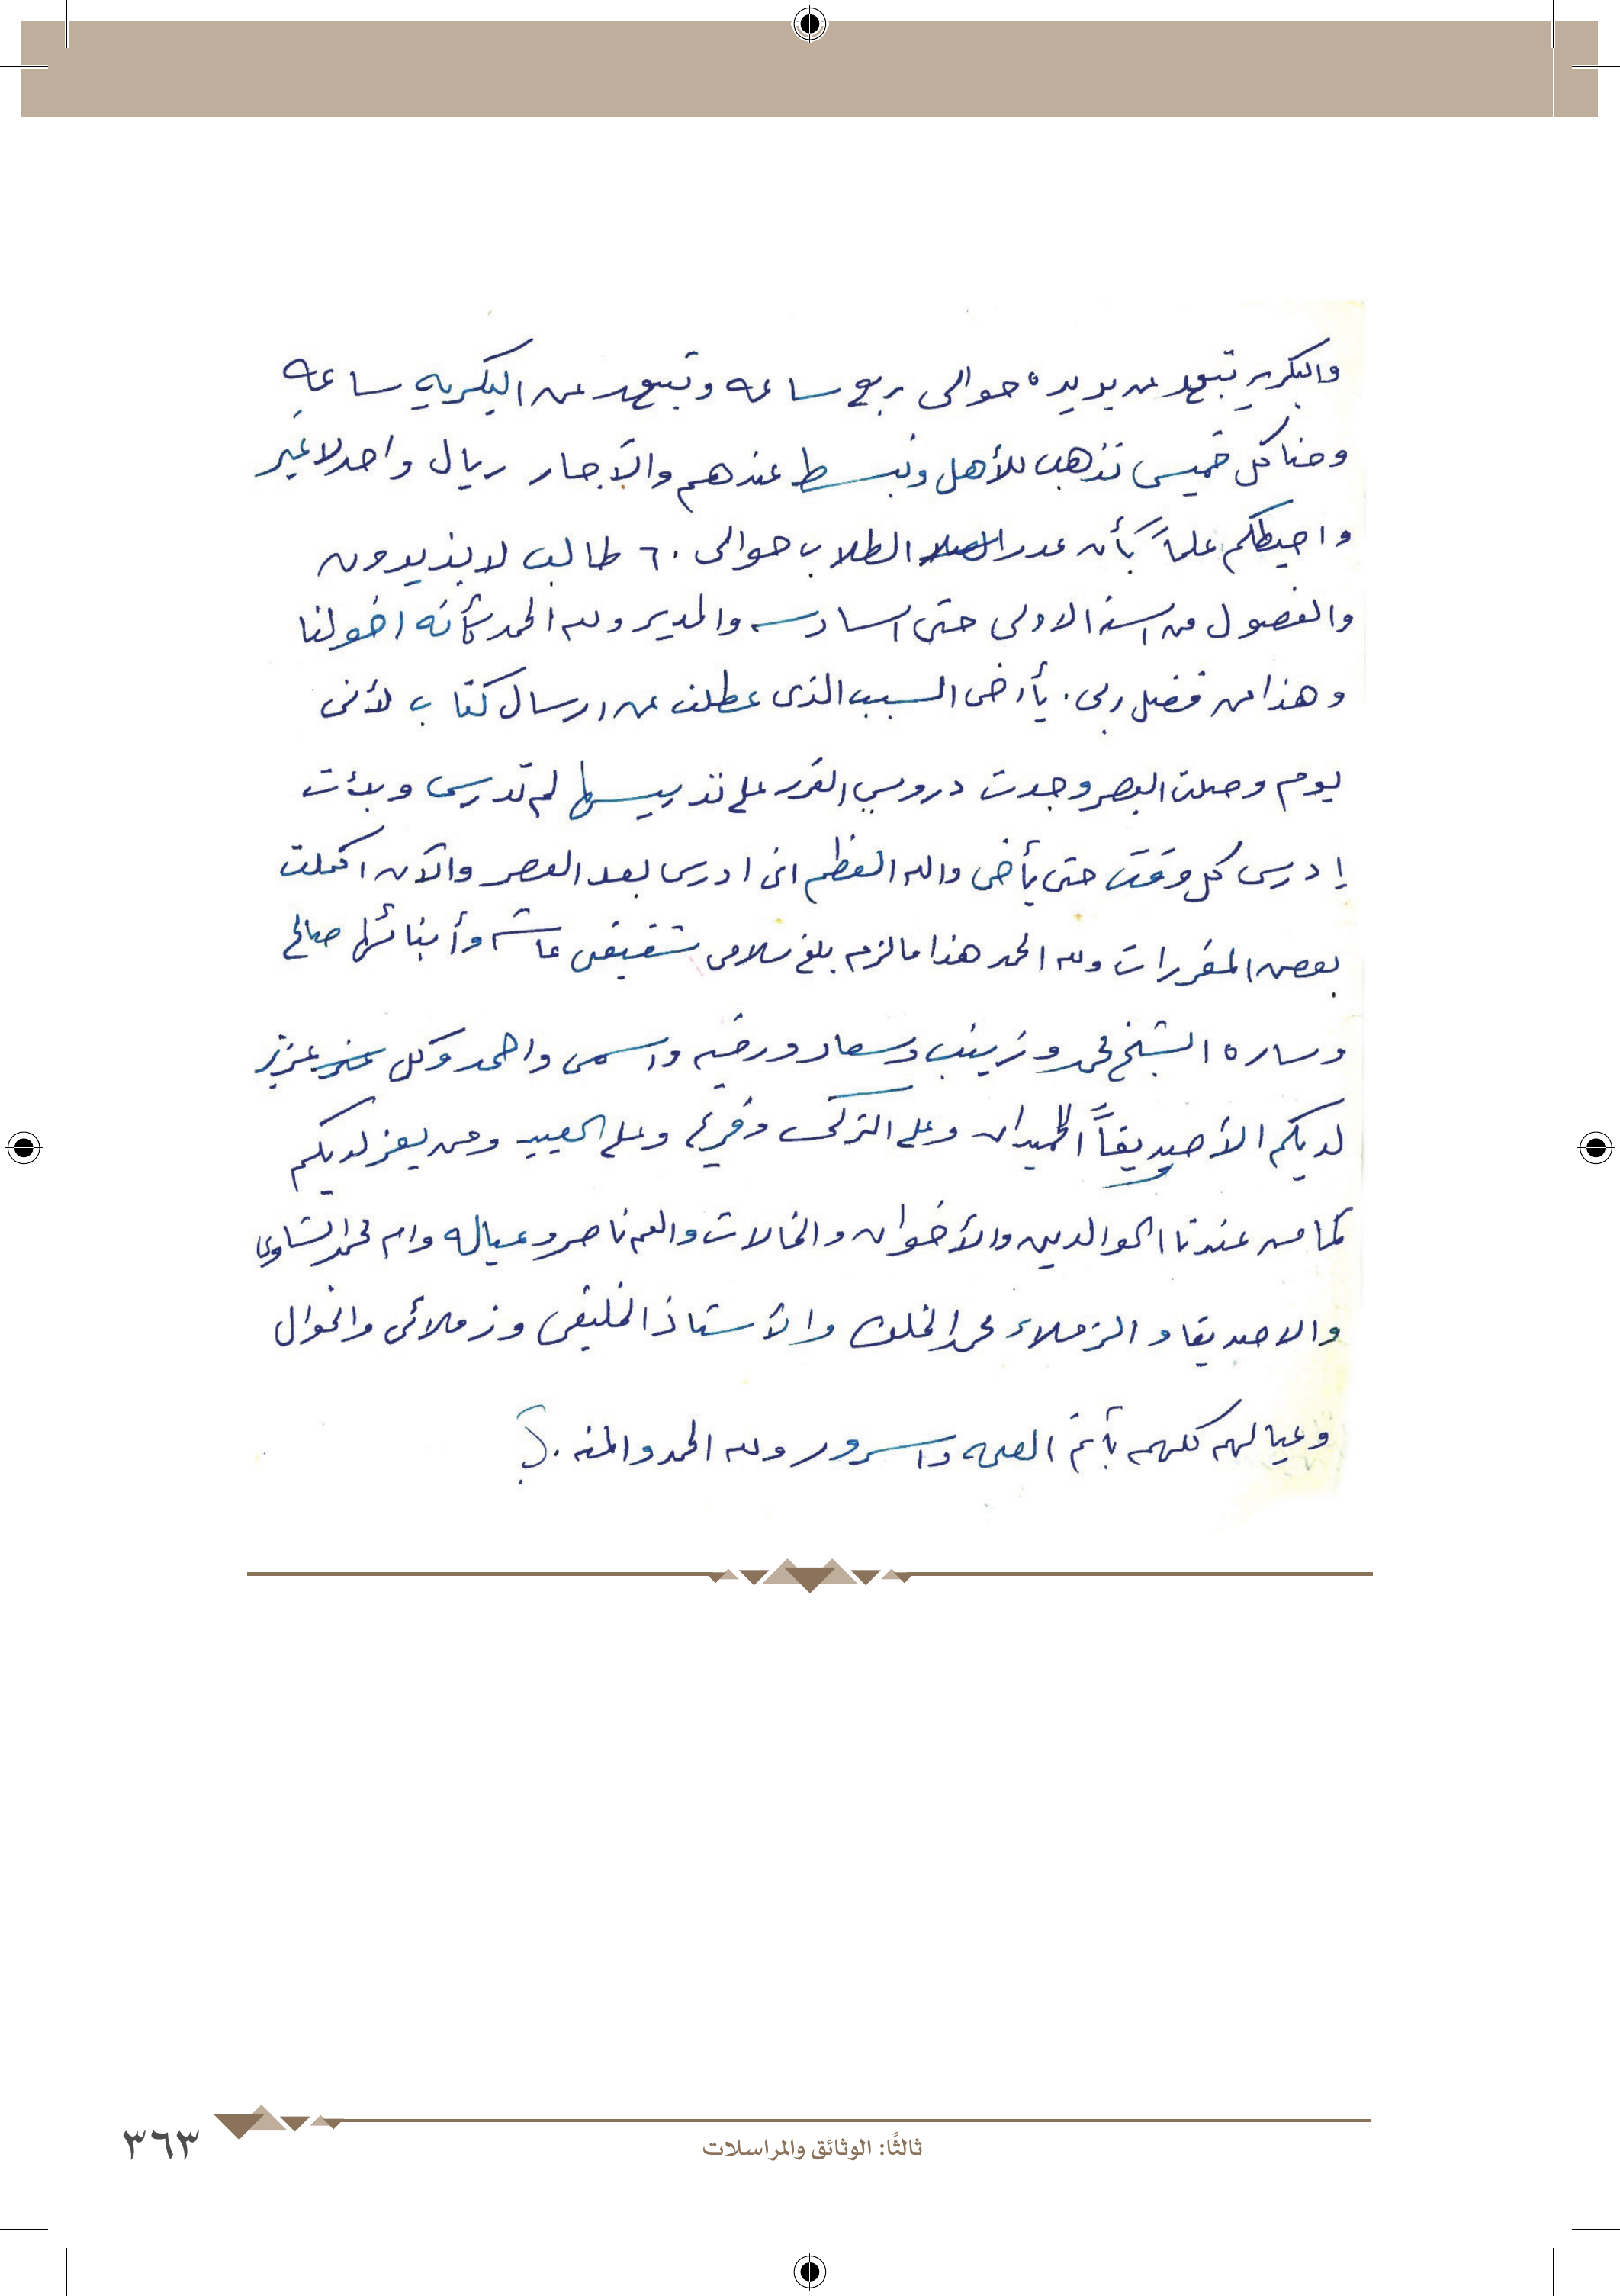 والبكريه تبعد عن بريده حوالى ربع ساعه وتبعد عن البكريه ساعه
وحنا كل خميس نذهب للأهل ونبسط عندهم والآجار ريال واحد لا غير
واحيطكم علماً بأن عدد الطلاب حوالى ٦٠ طالب لا يزيدون
والفصول من السنة الاولى حتى السادسه والمدير ولله الحمد كأنه اخو لنا
وهذا من فضل ربى. يأ أخى السبب الذى عطلنى عن ارسال كتاب لأنى
يوم وصلت البصر وجدت دروس المقرر على تدريسها لم تدرس وبدأت
ادرس كل وقت حتى يأخى والله العظم انى ادرس بعد العصر والآن اكملت
بعض المقررات ولله الحمد هذا مالزم بلغ سلامى شقيقى عائشه وأبنائها صالح
وساره الشيخ محمد وزينب وسعاد ورقيه واسمى واحمد وكل عزيز
لديكم الأصديقاً الحميدان وعلى التركى وعلى العبيد ومن يعز لديكم
كما من عندنا الوالدين والأخوان والخالات والعم ناصر وعياله وام محمد الشاوى
والاصديقا والزملاء محمد الخلف والآستاذ الخليفى وزملائى واخوال
وعيالهم كلهم بأتم الصحه والسرور ولله الحمد والمنه.
ثالثًا: الوثائق والمراسلات
٣٦٣